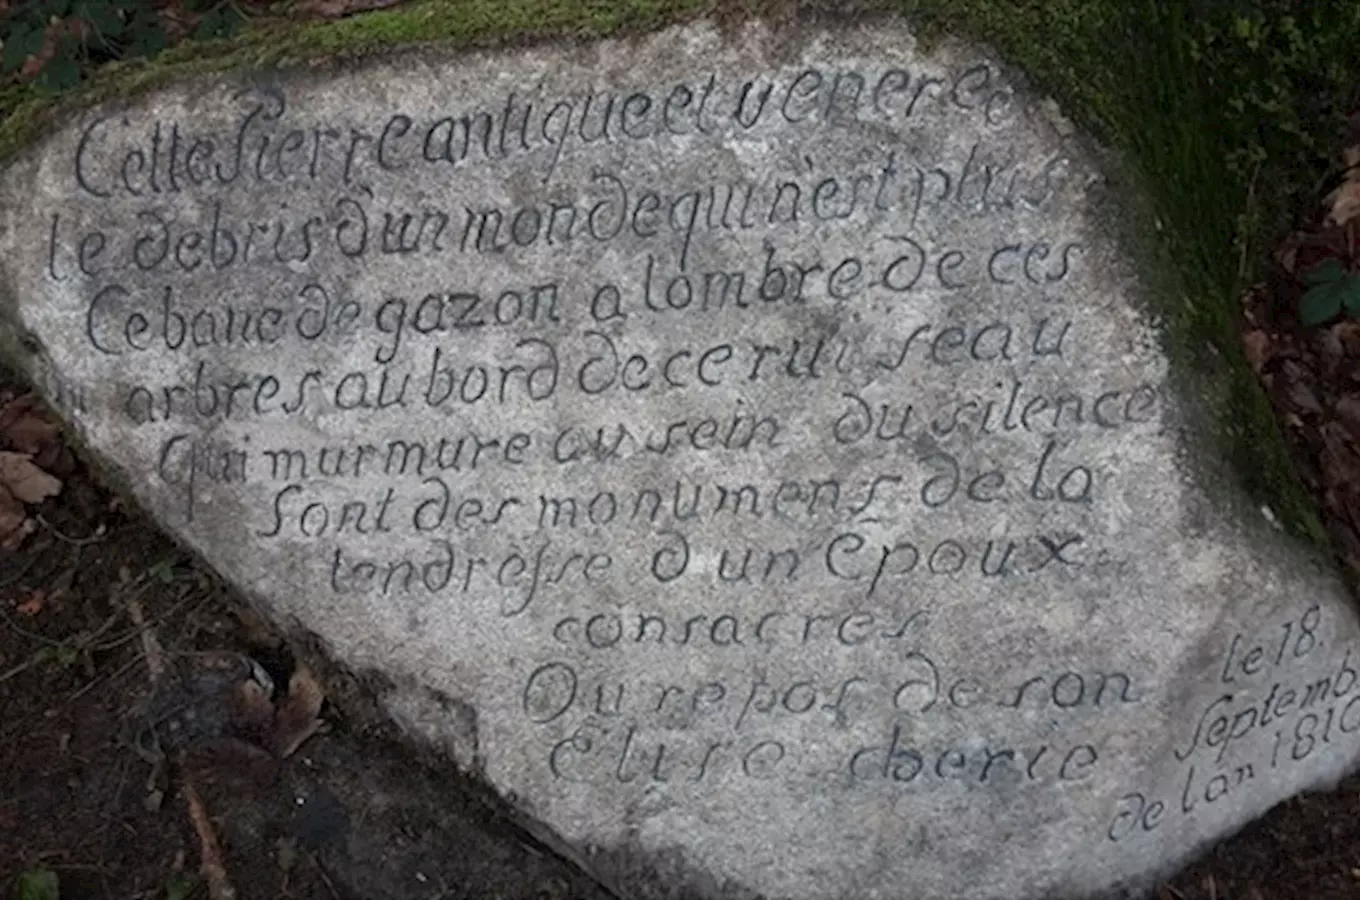 Cette Pierre antique et veneree
le debris d'un monde qui n'est plus
Ce banc de gazon a lombre de ces
arbres au bord de ce ruisseau
Qui murmure au sein du silence
sont des monumens de la
tendresse d'un epoux
consacres
Ou repos de son
Elise cherie
le 18.
Septemb
de lan 1810